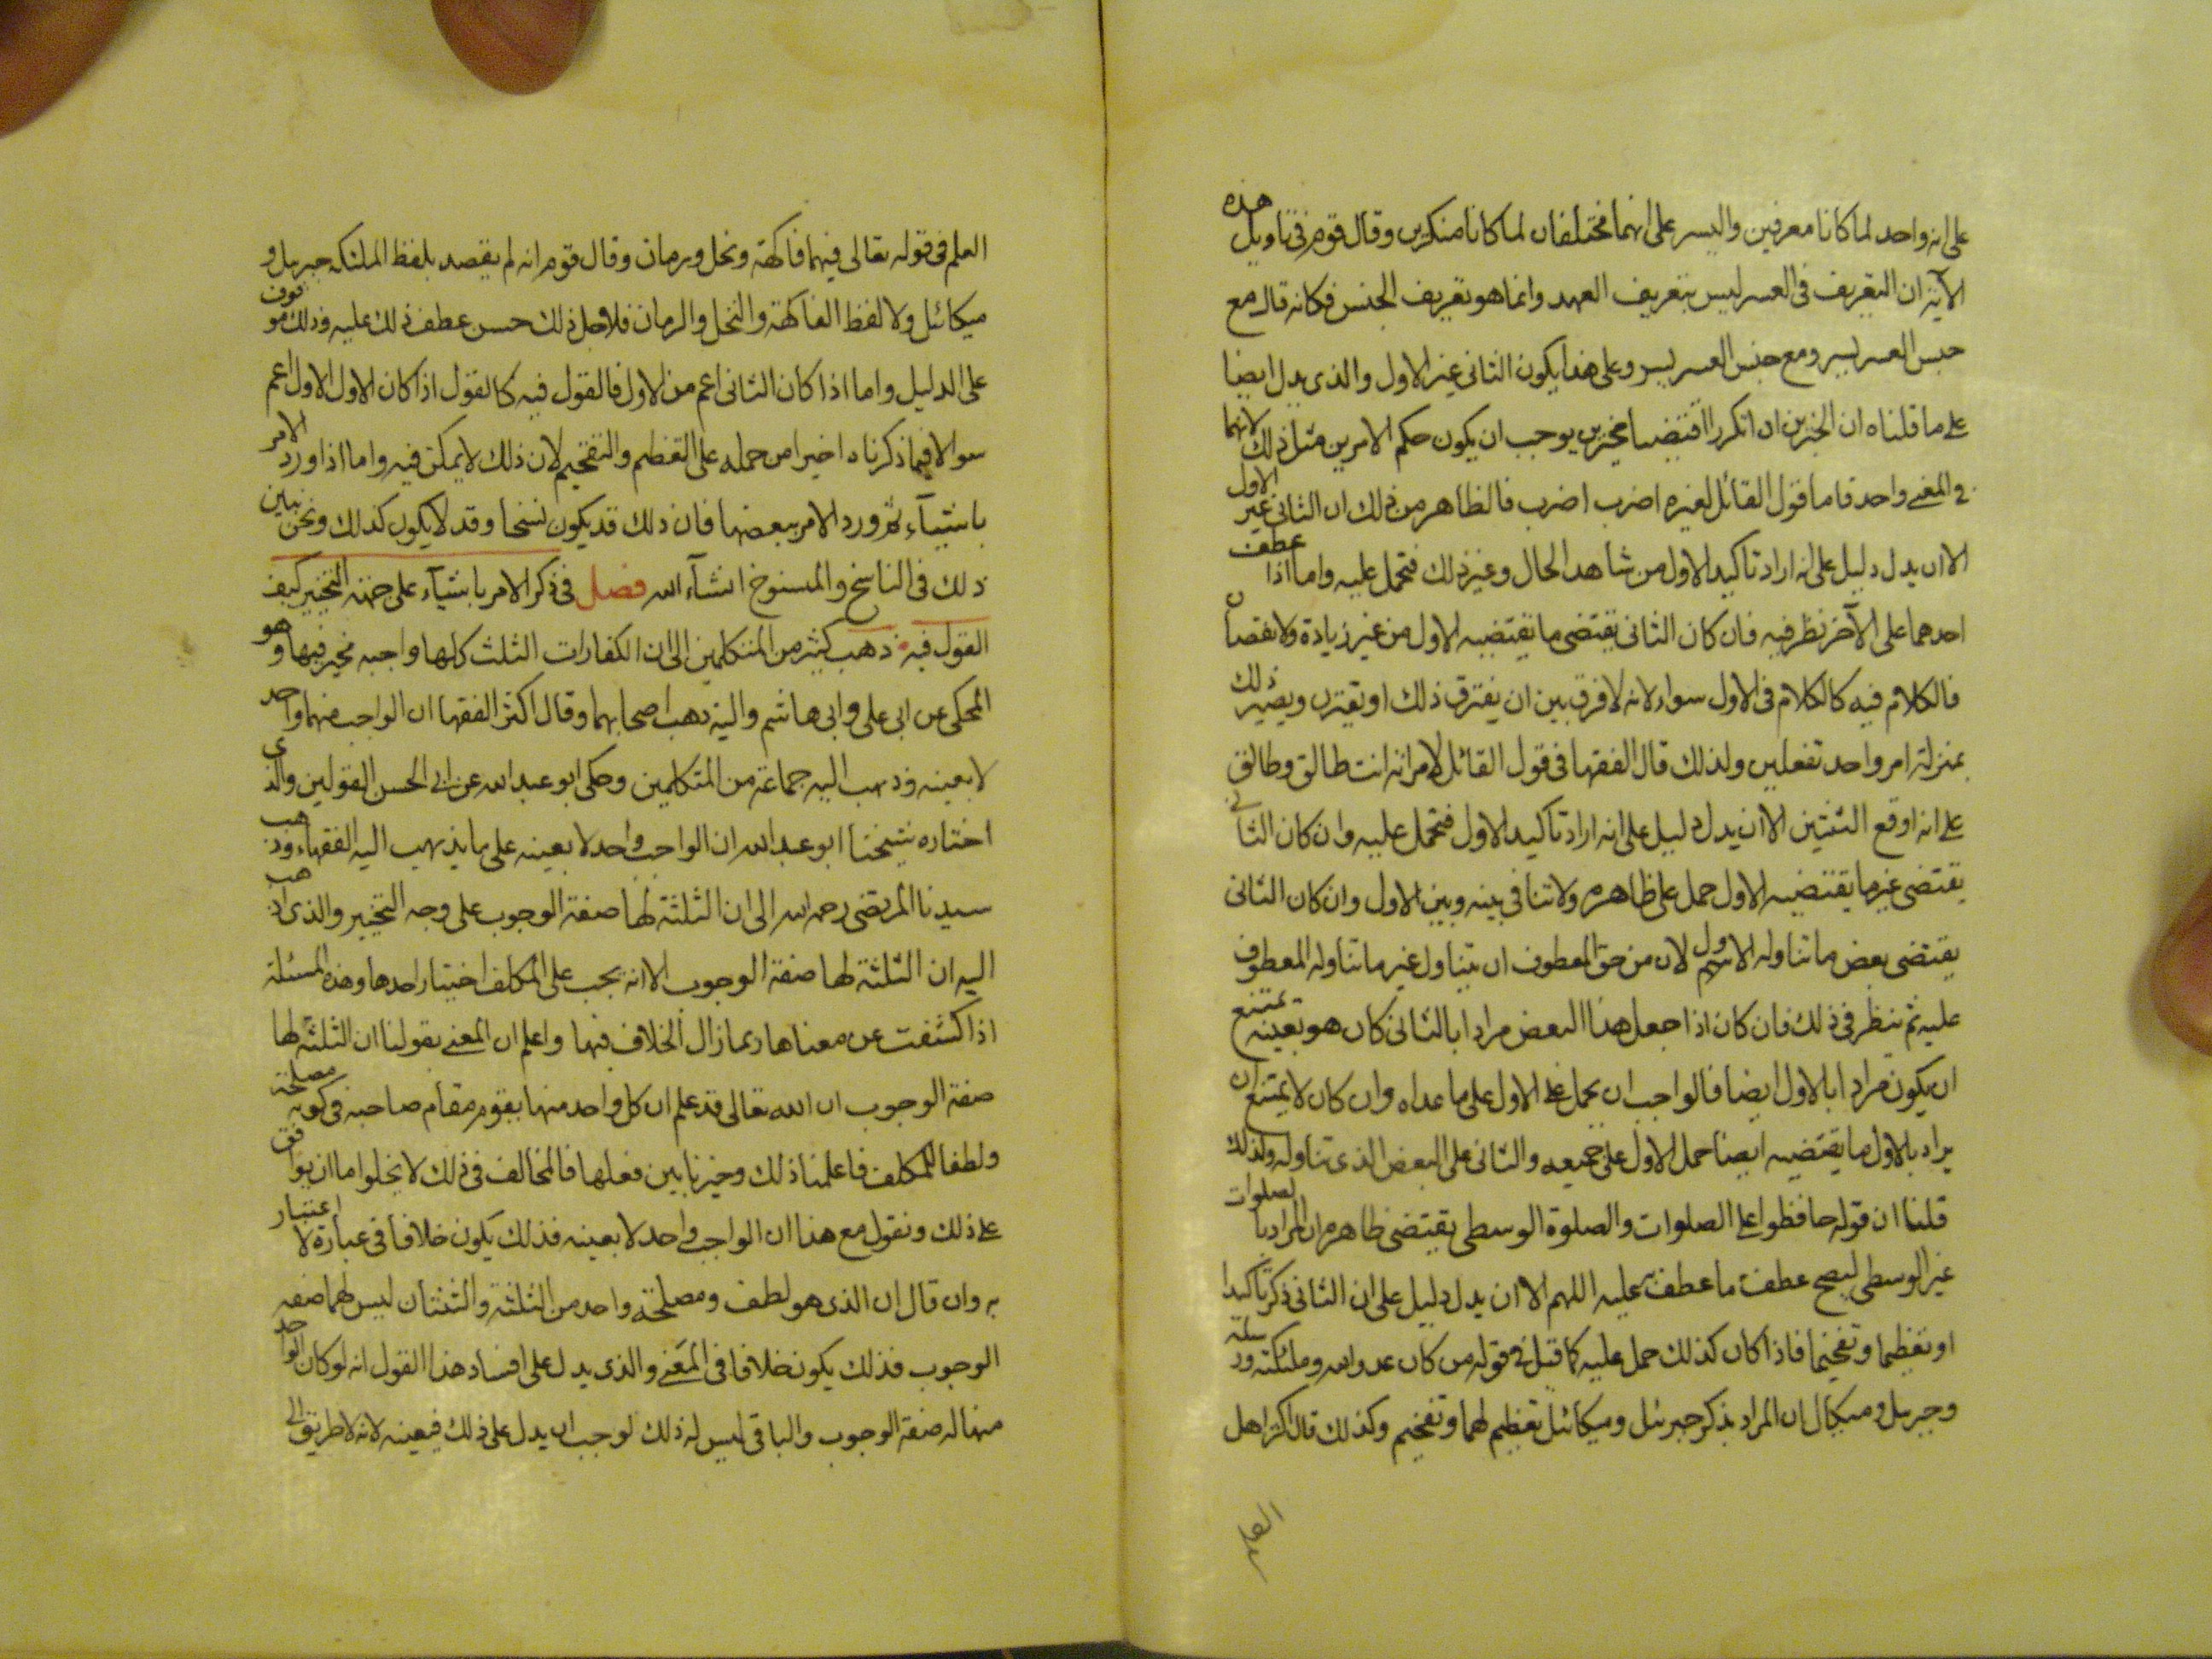 على انه واحد لما كانا معرفين واليسر على انهما مختلفان لما كانا منكرين وقال قوم في تاويل هذه
الآية ان التعريف في العسر ليس بتعريف العهد وانما هو تعريف الجنس فكانه قال مع
جنس العسر يسر ومع جنس العسر يسر وعلى هذا يكون الثانى غير الاول والذى يدل ايضا
على ما قلناه ان الخبرين اذا تكررا اقتضيا مخبرين يوجب ان يكون حكم الامرين مثل ذلك لانهما
في المعنى واحد فاما قول القائل لغيره اضرب اضرب فالظاهر من ذلك ان الثانى غير الاول
الا ان يدل دليل على انه اراد تاكيد الاول من شاهد الحال وغير ذلك فتحمل عليه واما اذا عطف
احدهما على الآخر نظر فيه فان كان الثانى يقتضى ما يقتضيه الاول من غير زيادة ولا نقصان
فالكلام فيه كالكلام في الاول سواء لانه لا فرق بين ان يفترق ذلك او يقترن ويصير ذلك
بمنزلة امر واحد تفعلين ولذلك قال الفقها في قول القائل لامراته انت طالق وطالق
على انه اوقع الثنتين الا ان يدل دليل على انه اراد تاكيد الاول فتحمل عليه وان كان الثانى
يقتضى غير ما يقتضيه الاول حمل على ظاهره ولا تنافى بينه وبين الاول وان كان الثانى
يقتضى بعض ما تناوله الاسم الاول لان من حق المعطوف ان يتناول غير ما تناوله المعطوف
عليه ثم ينظر في ذلك فان كان اذا جعل هذا البعض مرادا بالثانى كان هو بعينه يمتنع
ان يكون مرادا بالاول ايضا فالواجب ان يحمل على الاول على ما عداه وان كان لا يمتنع ان
يراد بالاول ما يقتضيه ايضا حمل الاول على جميعه والثانى على البعض الذى تناوله ولذلك
قلنا ان قوله حافظوا على الصلوات والصلوة الوسطى يقتضى ظاهره ان المراد بالصلوات
غير الوسطى ليصح عطف ما عطف عليه اللهم الا ان يدل دليل على ان الثانى ذكر تاكيدا
او تعظيما وتفخيما فاذا كان كذلك حمل عليه كما قيل في قوله من كان عدوا لله وملئكته ورسله
وجبريل وميكال ان المراد بذكر جبرئيل وميكائيل تعظيم لهما وتفخيم وكذلك قال اكثر اهل
العلم
العلم في قوله تعالى فيهما فاكهة ونخل ورمان وقال قوم انه لم يقصد بلفظ الملئكه جبريل و
ميكائيل ولا لفظ الفاكهة والنخل والرمان فلاجل ذلك حسن عطف ذلك عليه وذلك موقوف
على الدليل واما اذا كان الثانى اعم من الاول فالقول فيه كالقول اذا كان الاول الاول اعم
سواء الا فيما ذكرناه اخيرا من حمله على التعظيم والتفخيم لان ذلك لا يمكن فيه واما اذا ورد الامر
باشيآء ثم ورد الامر ببعضها فان ذلك قد يكون نسخا وقد لا يكون كذلك ونحن نبين
ذلك في الناسخ والمنسوخ انشآء الله فصل في ذكر الامر باشيآء على جهة التخيير كيف
القول فيه ذهب كثير من المتكلمين الى ان الكفارات الثلث كلها واجبه مخير فيها وهو
المحكى عن ابى على وابى هاشم واليه ذهب اصحابهما وقال اكثر الفقها ان الواجب منهما واحد
لا بعينه وذهب اليه جماعة من المتكلمين وحكى ابو عبد الله عن ابى الحسن القولين والذى
اختاره شيخنا ابو عبد الله ان الواجب واحد لا بعينه على ما يذهب اليه الفقهاء وذهب
سيدنا المرتضى رحمه الله الى ان الثلثة لها صفة الوجوب على وجه التخيير والذى اذهب
اليه ان الثلثة لها صفة الوجوب الا انه يجب على المكلف اختيار احدها وهذه المسئلة
اذا كشفت عن معناها ربما زال الخلاف فيها واعلم ان المعنى بقولنا ان الثلثة لها
صفة الوجوب ان الله تعالى قد علم ان كل واحد منها يقوم مقام صاحبه في كونه مصلحة
ولطفا للمكلف فاعلمنا ذلك وخيرنا بين فعلها فالمخالف في ذلك لا يخلوا اما ان يوافق
على ذلك ونقول مع هذا ان الواجب واحد لا بعينه فذلك يكون خلافا في عبارة لا اعتبار
به وان قال ان الذى هو لطف ومصلحة واحد من الثلثة والثنتان ليس لهما صفه
الوجوب فذلك يكون خلافا في المعنى والذى يدل على افساد هذا القول انه لو كان الواحد
منها له صفة الوجوب والباقى ليس له ذلك لوجب ان يدل على ذلك فيعينه لانه لا طريق الى